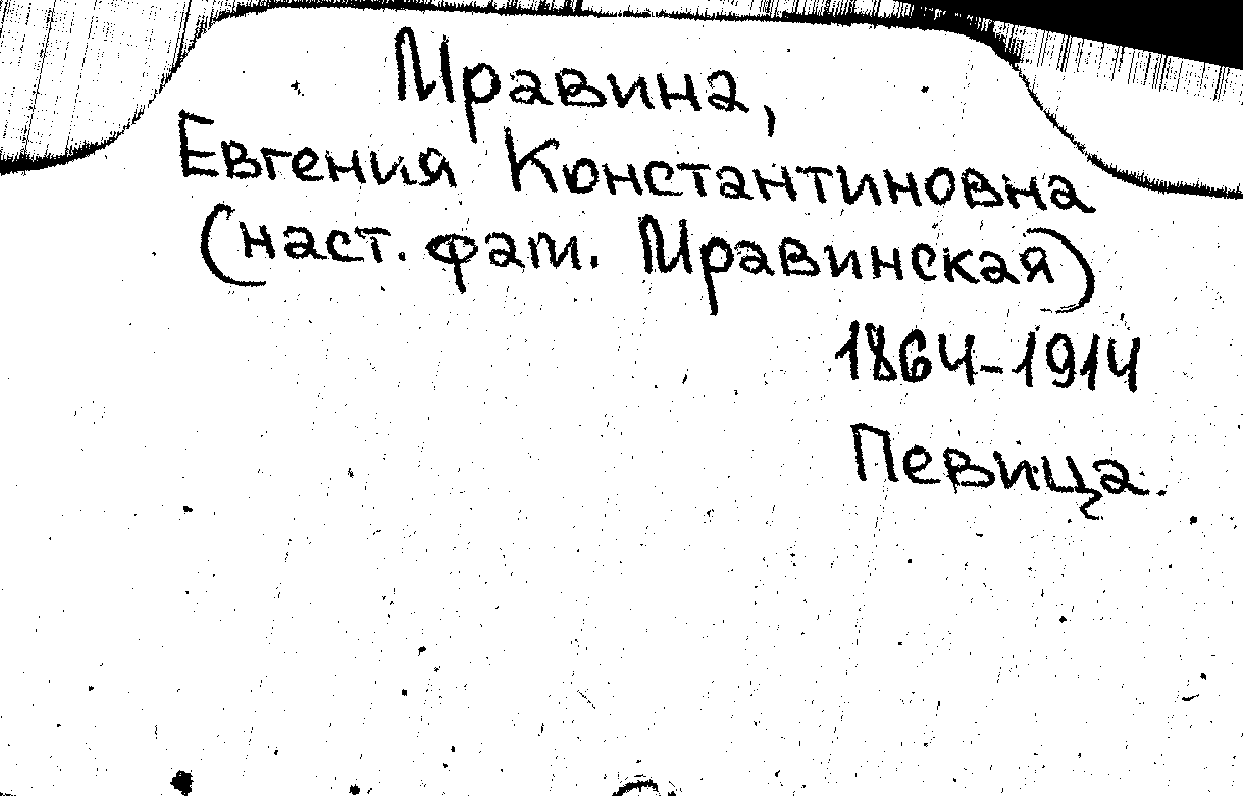 Мравина,
Евгения Константиновна
(наст. фам. Мравинская)
1864-1914
Певица.